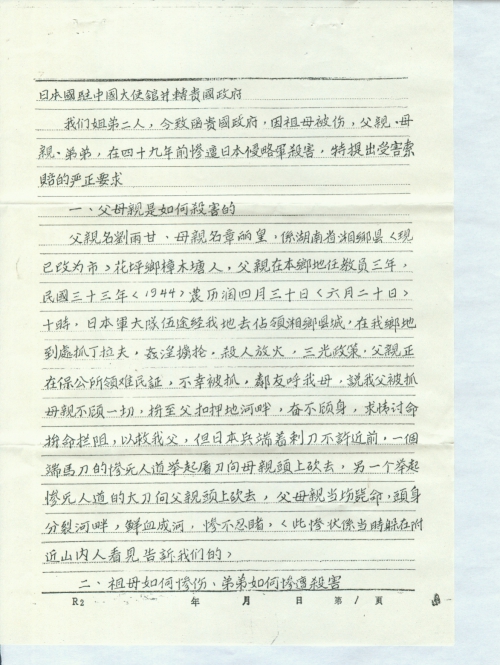 日本國駐中國大使館并轉貴國政府
我们姐弟二人，今致函貴國政府，因祖母被伤，父親、母
親、弟弟，在四十九年前惨遭日本侵略軍殺害，特提出受害索
賠的严正要求
一、父母親是如何殺害的
父親名劉雨甘、母親名章丽皇，係湖南省湘鄉县〈現
已改为市〉花坪鄉樟木塘人，父親在本鄉地任教员三年，
民國三十三年〈1944〉農历润四月三十日〈六月二十日〉
十時，日本軍大隊伍途经我地去佔領湘鄉县城，在我鄉地
到處抓丁拉夫，姦淫擄抢，殺人放火，三光政策，父親正
在保公所領难民証，不幸被抓，鄰友呼我母，説我父被抓
母親不顾一切，拚至父扣押地河畔，奋不顾身，求情讨命
拚命拦阻，以救我父，但日本兵端着刺刀不許近前，一個
端馬刀的惨死人道举起屠刀向母親頭上砍去，另一个举起
惨死人道的大刀向父親頭上砍去，父母親当场毙命，頭身
分裂河畔，鮮血成河，惨不忍睹，〈此惨状係当時躲在附
近山内人看見告訴我們的〉
二、祖母如何惨伤、弟弟如何惨遭殺害
R2 年 月 日 第 / 頁